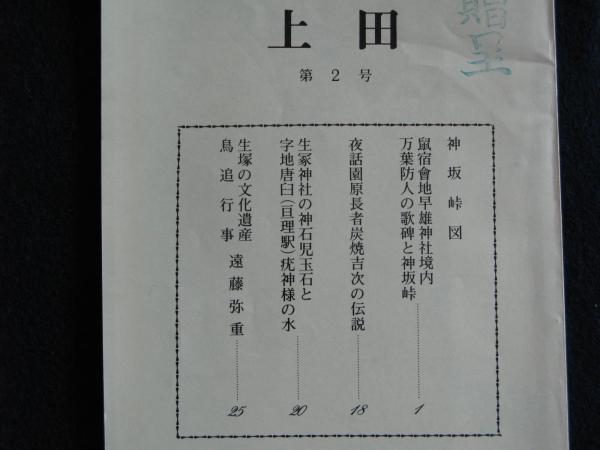 上田
第2号
贈呈
神坂峠図
鼠宿會地早雄神社境内
万葉防人の歌碑と神坂峠 1
夜話園原長者炭焼吉次の伝説 18
生冢神社の神石児玉石と
字地唐臼(亘理駅)疣神様の水 20
生塚の文化遺産
鳥追行事 遠藤弥重 25